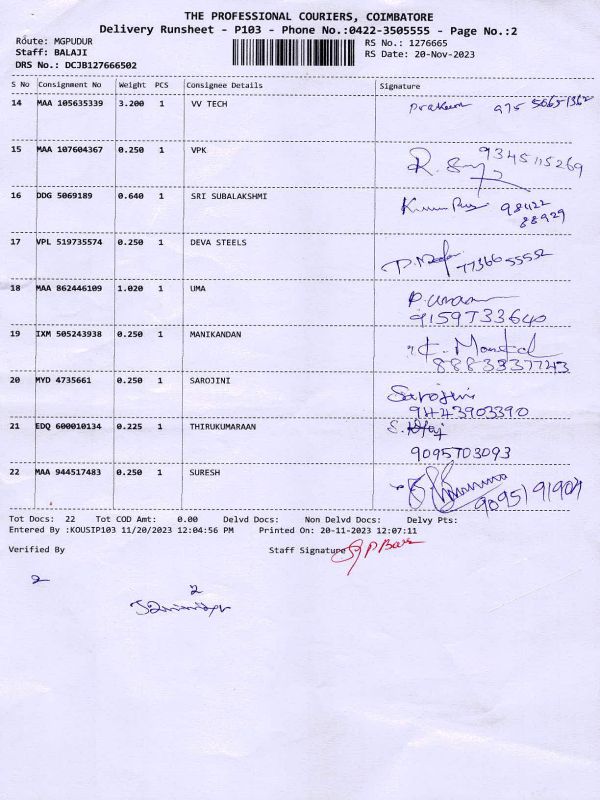 THE PROFESSIONAL COURIERS, COIMBATORE
Delivery Runsheet - P103 - Phone No.:0422-3505555 - Page No.:2
Route: MGPUDUR RS No.: 1276665
Staff: BALAJI RS Date: 20-Nov-2023
DRS No.: DCJB127666502
S No Consignment No Weight PCS Consignee Details Signature
14 MAA 105635339 3.200 1 VV TECH
15 MAA 107604367 0.250 1 VPK 9345115269
16 DDG 5069189 0.640 1 SRI SUBALAKSHMI 98422
88929
17 VPL 519735574 0.250 1 DEVA STEELS
18 MAA 862446109 1.020 1 UMA
9159733640
19 IXM 505243938 0.250 1 MANIKANDAN
8883337743
20 MYD 4735661 0.250 1 SAROJINI Sarojini
9443903390
21 EDQ 600010134 0.225 1 THIRUKUMARAAN
9095703093
22 MAA 944517483 0.250 1 SURESH
Tot Docs: 22 Tot COD Amt: 0.00 Delvd Docs: Non Delvd Docs: Delvy Pts:
Entered By :KOUSIP103 11/20/2023 12:04:56 PM Printed On: 20-11-2023 12:07:11
Verified By Staff Signature
2
2